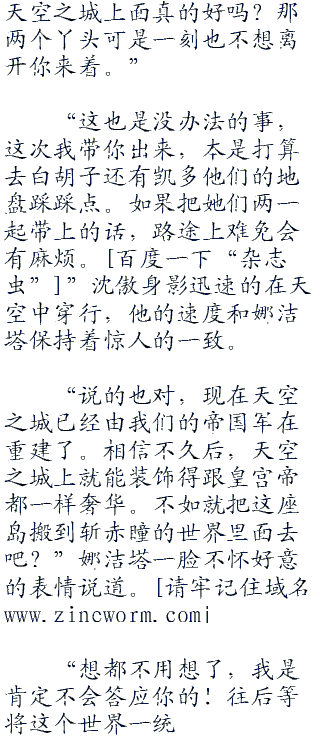 天空之城上面真的好吗？那
两个丫头可是一刻也不想离
开你来着。”
“这也是没办法的事，
这次我带你出来，本是打算
去白胡子还有凯多他们的地
盘踩踩点。如果把她们两一
起带上的话，路途上难免会
有麻烦。[百度一下“杂志
虫”]”沈傲身影迅速的在天
空中穿行，他的速度和娜洁
塔保持着惊人的一致。
“说的也对，现在天空
之城已经由我们的帝国军在
重建了。相信不久后，天空
之城上就能装饰得跟皇宫帝
都一样奢华。不如就把这座
岛搬到斩赤瞳的世界里面去
吧？”娜洁塔一脸不怀好意
的表情说道。[请牢记住域名
www.zincworm.com|
“想都不用想了，我是
肯定不会答应你的！往后等
将这个世界一统